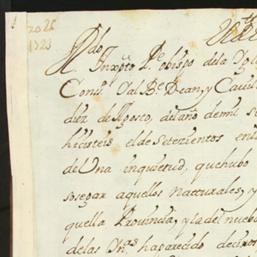 1723
Rdo
Inxpto Pe obispo dela Igl
Conso Val Be Dean, y Cavil
diez de Agosto, del año demil s
hicisteis el de Setezientos
de Una inquietud, que hubo
sosegar aquellos Natturales, y
quella Provincia, y la del nuebo
de las Yns ha parecido deciros